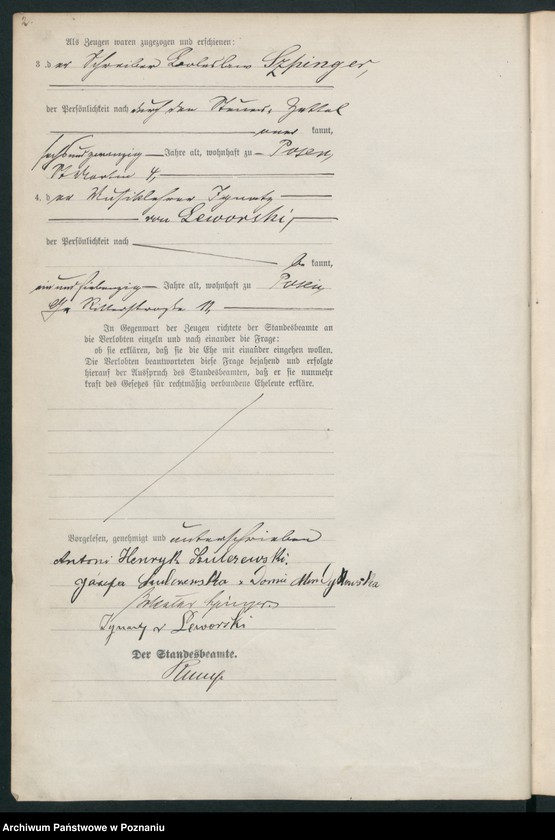 2
Als Zeugen waren zugezogen und erschienen:
3. der Schreiber Boleslaw Szpinger,
der Persönlichkeit nach durch den Steuer-Zettel
aner kannt,
sechsundzwanzig Jahre alt, wohnhaft zu Posen,
St. Martin 4,
4. der Musiklehrer Ignatz
von Leworski,
der Persönlichkeit nach
be kannt,
ein und siebenzig Jahre alt, wohnhaft zu Posen
Ritterstraße 11,
In Gegenwart der Zeugen richtete der Standesbeamte an
die Verlobten einzeln und nach einander die Frage:
ob sie erklären, daß sie die Ehe mit einander eingehen wollen.
Die Verlobten beantworteten diese Frage bejahend und erfolgte
hierauf der Ausspruch des Standesbeamten, daß er sie nunmehr
kraft des Gesetzes für rechtmäßig verbundene Eheleute erkläre.
Vorgelesen, genehmigt und unterschrieben
Antoni Henryk Szulczewski.
Józefa Szulczewska z domu
Szpinger
Ignacy v Leworski
Der Standesbeamte.
Archiwum Państwowe w Poznaniu